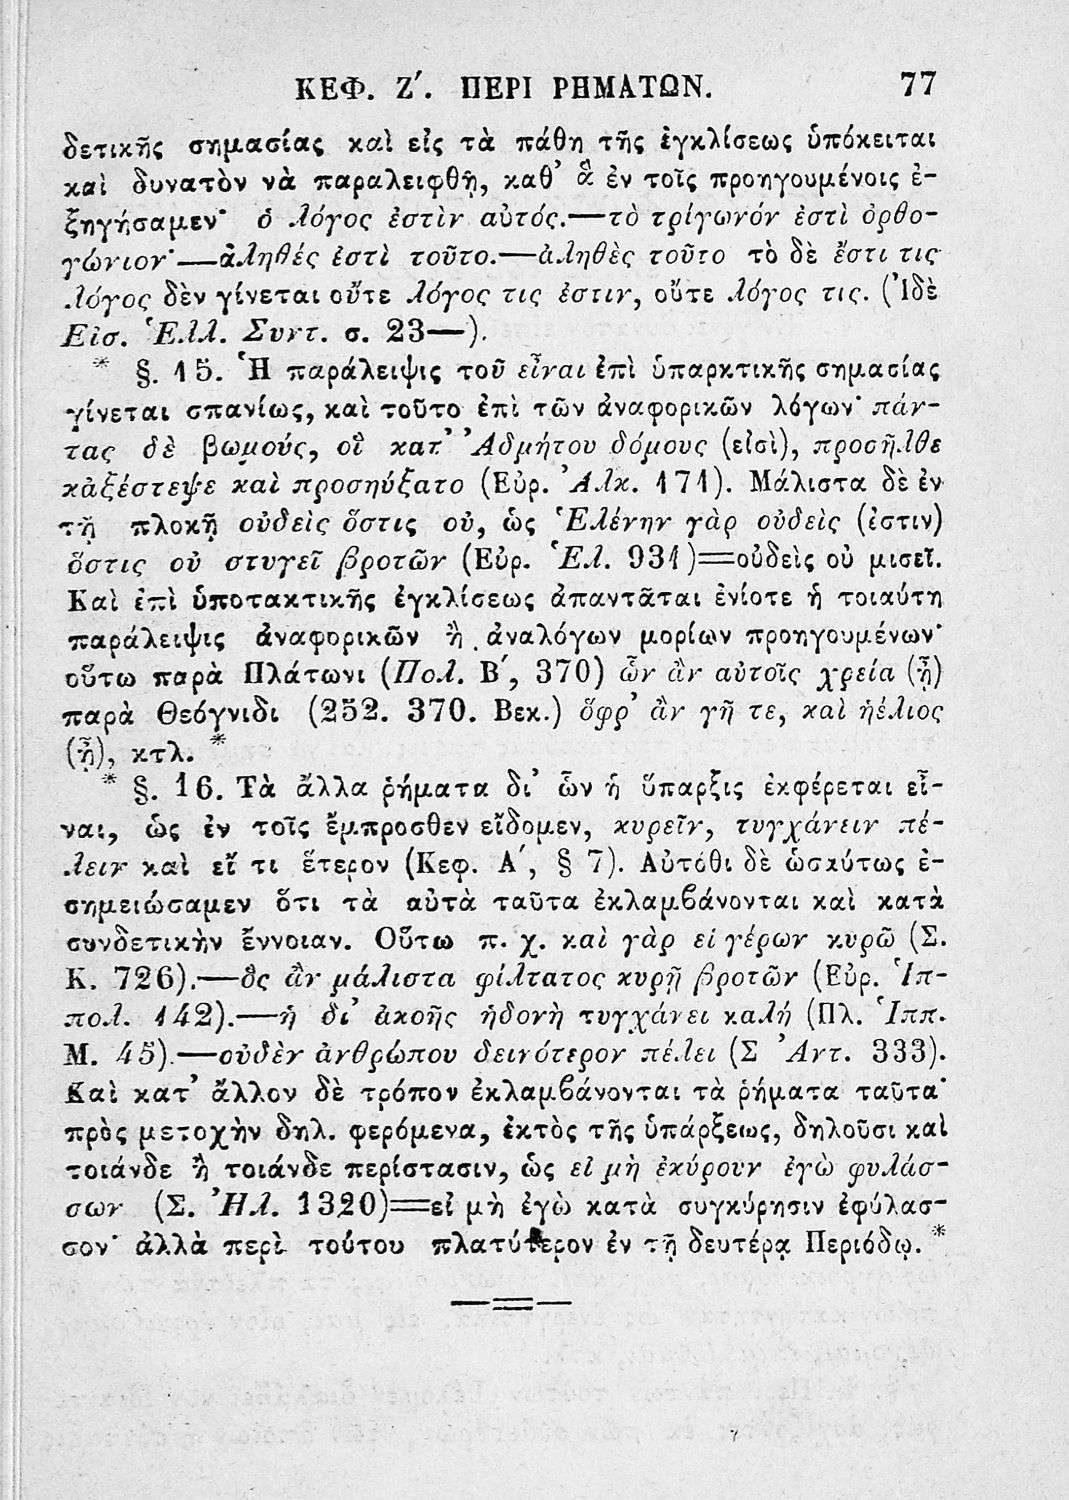 ΚΕΦ. Ζ΄. ΠΕΡΙ ΡΗΜΑΤΩΝ. 77
δετικῆς σημασίας καὶ εἰς τὰ πάθη τῆς ἐγκλίσεως ὑπόκειται
καὶ δυνατὸν νὰ παραλειφθῇ, καθ’ ἃ ἐν τοῖς προηγουμένοις ἐ-
ξηγήσαμεν· ὁ λόγος ἐστὶν αὐτός.—τὸ τρίγωνόν ἐστὶ ὀρθο-
γώνιον·—ἀληθές ἐστὶ τοῦτο.—ἀληθὲς τοῦτο τὸ δὲ ἔστι τις
λόγος δὲν γίνεται οὔτε λόγος τις ἐστιν, οὔτε λόγος τις. (Ἰδὲ
Εἰσ. Ἑλλ. Συντ. σ. 23—).
* §. 15. Ἡ παράλειψις τοῦ εἶναι ἐπὶ ὑπαρκτικῆς σημασίας
γίνεται σπανίως, καὶ τοῦτο ἐπὶ τῶν ἀναφορικῶν λόγων· πάν-
τας δὲ βωμούς, οἳ κατ’ Ἀδμήτου δόμους (εἰσὶ), προσῆλθε
κἀξέστεψε καὶ προσηύξατο (Εὐρ. Ἀλκ. 171). Μάλιστα δὲ ἐν
τῇ πλοκῇ οὐδεὶς ὅστις οὐ, ὡς Ἑλένην γὰρ οὐδεὶς (ἐστιν)
ὅστις οὐ στυγεῖ βροτῶν (Εὐρ. Ἑλ. 931)=οὐδεὶς οὐ μισεῖ.
Καὶ ἐπὶ ὑποτακτικῆς ἐγκλίσεως ἀπαντᾶται ἐνίοτε ἡ τοιαύτη
παράλειψις ἀναφορικῶν ἢ ἀναλόγων μορίων προηγουμένων·
οὕτω παρὰ Πλάτωνι (Πολ. Β΄, 370) ὧν ἂν αὐτοῖς χρεία (ᾖ)
παρὰ Θεόγνιδι (252. 370. Βεκ.) ὄφρ’ ἂν γῆ τε, καὶ ἠέλιος
(ᾖ), κτλ. *
* §. 16. Τὰ ἄλλα ῥήματα δι’ ὧν ἡ ὕπαρξις ἐκφέρεται εἶ-
ναι, ὡς ἐν τοῖς ἔμπροσθεν εἴδομεν, κυρεῖν, τυγχάνειν πέ-
λειν καὶ εἴ τι ἕτερον (Κεφ. Α΄, § 7). Αὐτόθι δὲ ὡσαύτως ἐ-
σημειώσαμεν ὅτι τὰ αὐτὰ ταῦτα ἐκλαμβάνονται καὶ κατὰ
συνδετικὴν ἔννοιαν. Οὕτω π. χ. καὶ γὰρ εἰ γέρων κυρῶ (Σ.
Κ. 726).—ὃς ἂν μάλιστα φίλτατος κυρῇ βροτῶν (Εὐρ. Ἱπ-
πολ. 142).—ἡ δι’ ἀκοῆς ἡδονὴ τυγχάνει καλή (Πλ. Ἱππ.
Μ. 45).—οὐδὲν ἀνθρώπου δεινότερον πέλει (Σ Ἀντ. 333).
Καὶ κατ’ ἄλλον δὲ τρόπον ἐκλαμβάνονται τὰ ῥήματα ταῦτα·
πρὸς μετοχὴν δηλ. φερόμενα, ἐκτὸς τῆς ὑπάρξεως, δηλοῦσι καὶ
τοιάνδε ἢ τοιάνδε περίστασιν, ὡς εἰ μὴ ἐκύρουν ἐγὼ φυλάσ-
σων (Σ. Ἠλ. 1320)=εἰ μὴ ἐγὼ κατὰ συγκύρησιν ἐφύλασ-
σον· ἀλλὰ περὶ τούτου πλατύτερον ἐν τῇ δευτέρᾳ Περιόδῳ. *